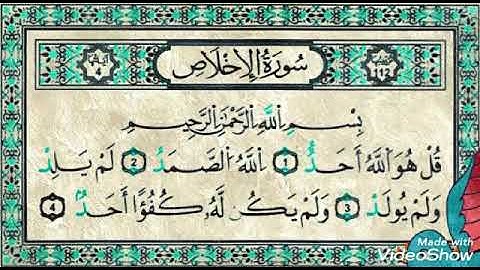 سُورَةُ الإِخْلَاصِ
بِسْمِ اللَّهِ الرَّحْمَٰنِ الرَّحِيمِ
قُلْ هُوَ اللَّهُ أَحَدٌ ۝١ اللَّهُ الصَّمَدُ ۝٢ لَمْ يَلِدْ
وَلَمْ يُولَدْ ۝٣ وَلَمْ يَكُن لَّهُ كُفُوًا أَحَدٌ ۝٤
Made with
VideoShow